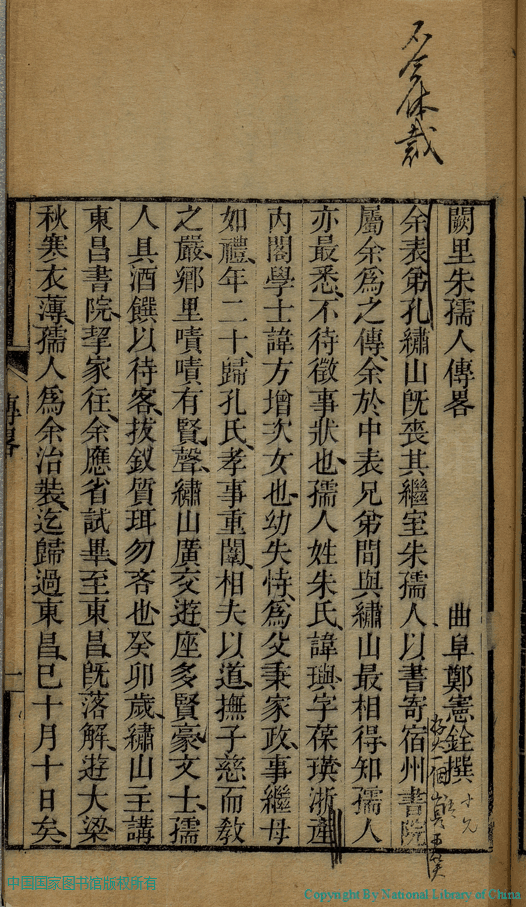 不合体裁
闕里朱孺人傳畧
曲阜鄭憲銓撰
余表弟孔繡山旣喪其繼室朱孺人以書寄宿州書院
屬余爲之傳余於中表兄弟間與繡山最相得知孺人
亦最悉不待徵事狀也孺人姓朱氏諱璵字葆瑛浙產
內閣學士諱方增次女也幼失恃爲父秉家政事繼母
如禮年二十歸孔氏孝事重闈相夫以道撫子慈而敎
之嚴鄉里嘖嘖有賢聲繡山廣交遊座多賢豪文士孺
人具酒饌以待客拔釵質珥勿吝也癸卯歲繡山主講
東昌書院挈家往余應省試畢至東昌旣落解遊大梁
秋寒衣薄孺人爲余治裝迄歸過東昌已十月十日矣
傳畧
一
中国国家图书馆版权所有
Copyright By National Library of China